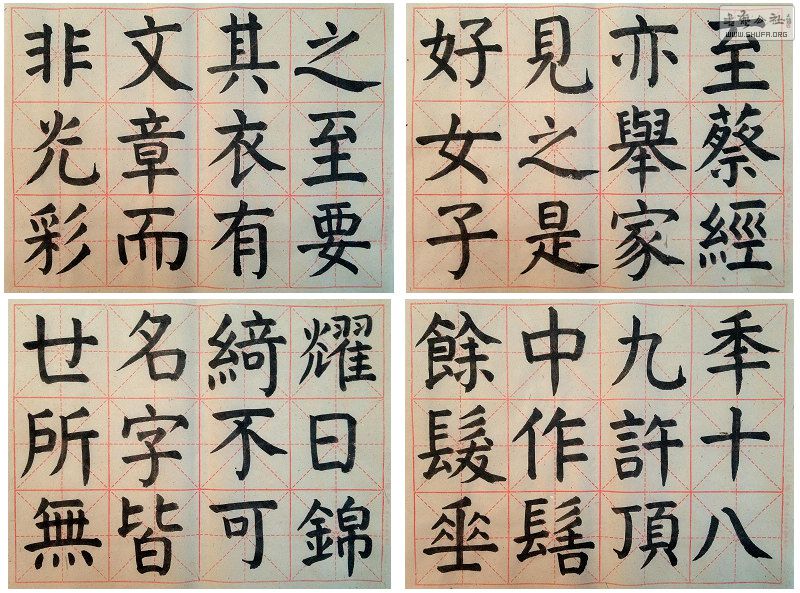 至蔡經
亦舉家
見之是
好女子
年十八
九許頂
中作髻
餘髮垂
之至要
其衣有
文章而
非光彩
耀日錦
綺不可
名字皆
世所無
書法公社
WWW.SHUFA.ORG